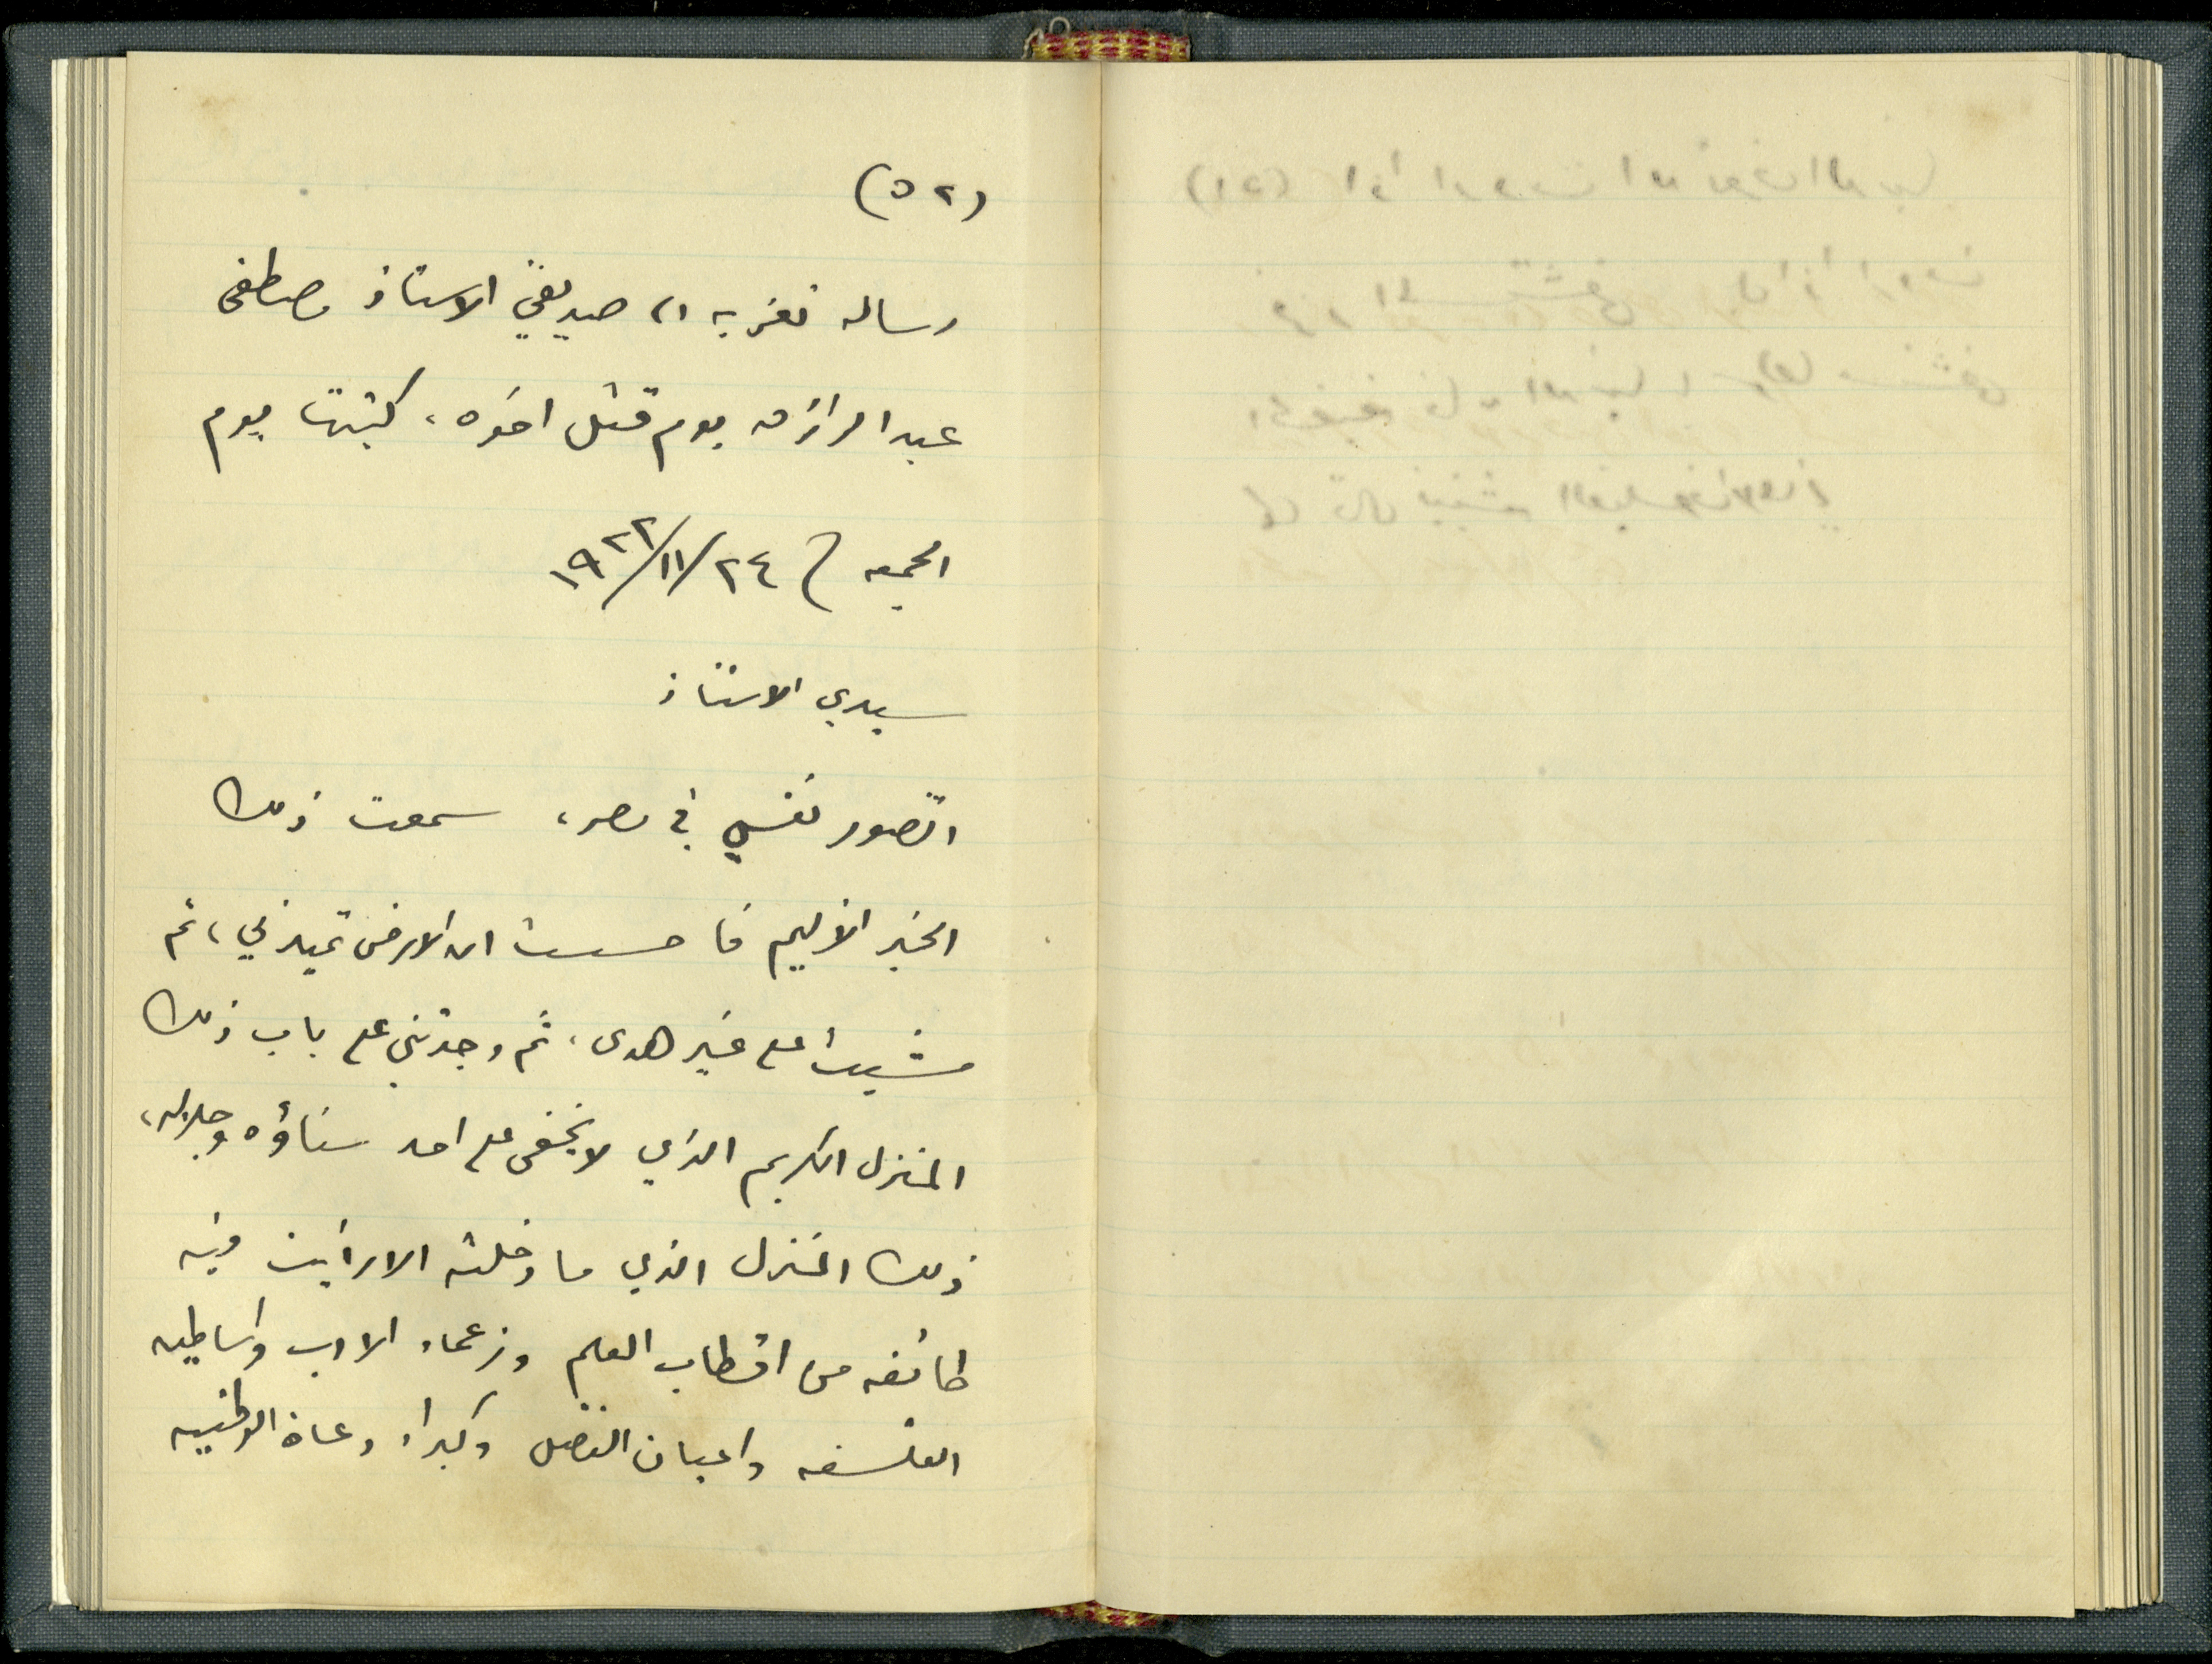 (٥٢)
رساله تعزيه الى صديقي الاستاذ مصطفى
عبد الرازق يوم قتل اخوه، كتبتها يوم
الجمعه ٢٤/١١/١٩٢٢
سيدي الاستاذ
اتصور نفسي في مصر، سمعت ذلك
الخبر الأليم فاحسست ان الارض تميد بي، ثم
مشيت على غير هدى، ثم وجدتني على باب ذلك
المنزل الكريم الذي لا يخفى على احد سناؤه وجلاله،
ذلك المنزل الذي ما دخلته الا رأيت فيه
طائفه من اقطاب العلم وزعماء الادب واساطين
الفلسفه واعيان الفضل وكبراء دعاة الوطنيه